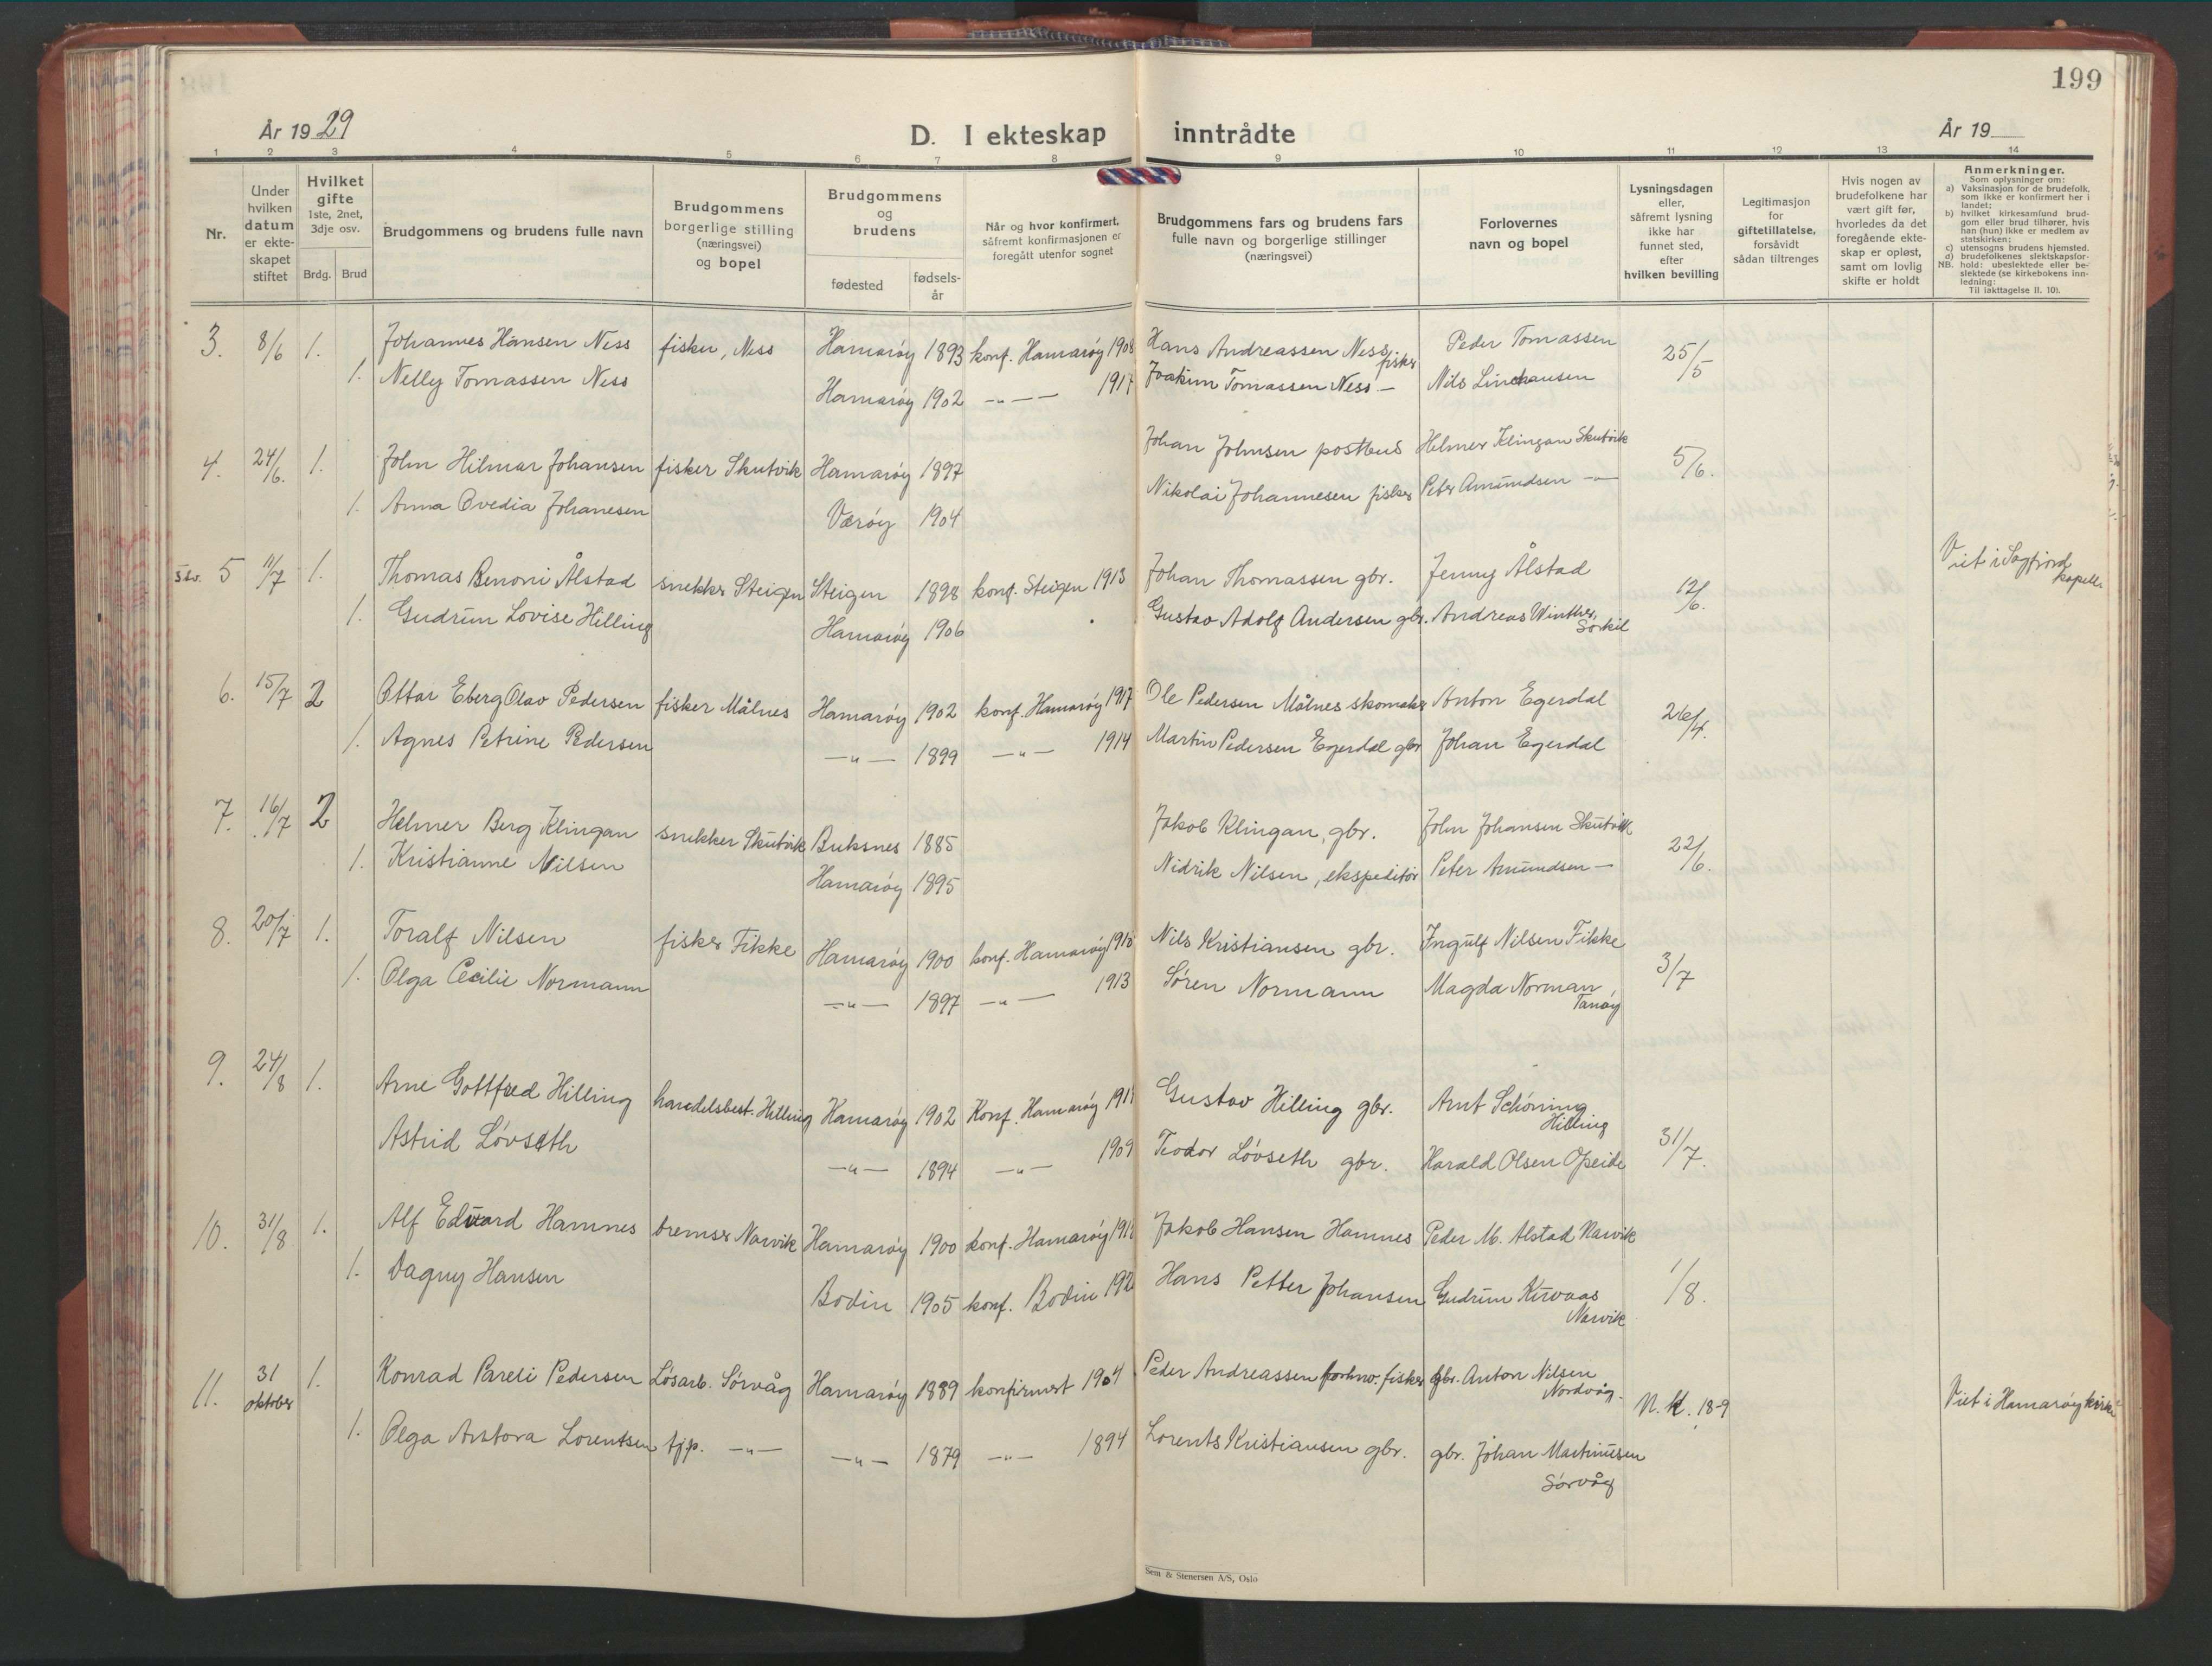 199
År 1929
D. I ekteskap inntrådte
År 19
1 2 3 4 5 6 7 8 9 10 11 12 13 14
Nr.
Under hvilken datum er ekte-skapet stiftet
Hvilket gifte
1ste, 2net, 3dje osv.
Brdg. Brud
Brudgommens og brudens fulle navn
Brudgommens borgerlige stilling (næringsvei) og bopel
Brudgommens og brudens
fødested
fødsels-år
Når og hvor konfirmert, såfremt konfirmasjonen er foregått utenfor sognet
Brudgommens fars og brudens fars fulle navn og borgerlige stillinger (næringsvei)
Forlovernes navn og bopel
Lysningsdagen eller, såfremt lysning ikke har funnet sted, efter hvilken bevilling
Legitimasjon for giftetillatelse, forsåvidt sådan tiltrenges
Hvis nogen av brudefolkene har vært gift før, hvorledes da det foregående ekte-skap er opløst, samt om lovlig skifte er holdt
Anmerkninger.
Som oplysninger om:
a) Vaksinasjon for de brudefolk, som ikke er konfirmert her i landet;
b) hvilket kirkesamfund brud-gom eller brud tilhører, hvis han (hun) ikke er medlem av statskirken;
c) utensogns brudens hjemsted.
d) brudefolkenes slektskapsfor-
NB. hold: ubeslektede eller be-slektede (se kirkebokens inn-ledning:
Til iakttagelse II. 10).
3. 8/6 1. Johannes Hansen Ness fisker, Ness Hamarøy 1893 konf. Hamarøy 1908 Hans Andreassen Ness fisker Peder Tomassen 25/5
1. Nelly Tomassen Ness Hamarøy 1902 —"— 1917 Joakim Tomassen Ness — Nils Linchausen
4. 24/6. 1. John Hilmar Johansen fisker Skutvik Hamarøy 1897 Johan Johnsen postbud Helmer Klingan Skutvik 5/6.
1. Anna Ovedia Johanesen Værøy 1904 Nikolai Johannesen fisker Peter Amundsen —"—
5 11/7 1. Thomas Benoni Ålstad snekker Steigen Steigen 1898 konf. Steigen 1913 Johan Thomassen gbr. Jenny Ålstad 12/6. Viet i Sagfjord kapell
1. Gudrun Lovise Hilling Hamarøy 1906 Gustav Adolf Andersen gbr. Andreas Winther, Sørkil
6. 15/7 2 Ottar Eberg Olav Pedersen fisker Målnes Hamarøy 1902 konf. Hamarøy 1917 Ole Pedersen Målnes skomaker Anton Egerdal 26/4.
1. Agnes Petrine Pedersen —"— 1899 —"— 1914 Martin Pedersen Egerdal gbr Johan Egerdal
7. 16/7 2 Helmer Berg Klingan snekker Skutvik Buksnes 1885 Jakob Klingan, gbr. John Johansen Skutvik 22/6.
1. Kristianne Nilsen Hamarøy 1895 Nidrik Nilsen, ekspeditør Peter Amundsen —
8. 20/7 1. Toralf Nilsen fisker Fikke Hamarøy 1900 konf. Hamarøy Nils Kristiansen gbr. Ingulf Nilsen Fikke 3/7
1. Olga Cecilie Normann —"— 1897 —"— 1913 Søren Normann Magda Norman, Tanøy
9. 24/8 1. Arne Gottfred Hilling handelsbest. Hilling Hamarøy 1902 Konf. Hamarøy Gustav Hilling gbr. Arnt Schøning Hilling 31/7.
Astrid Løvseth —"— 1894 —"— 1909 Teodor Løvseth gbr. Harald Olsen Opeide
10. 31/8 1. Alf Edvard Hamnes bremser Narvik Hamarøy 1900 konf. Hamarøy Jakob Hansen Hamnes Peder M. Alstad Narvik 1/8.
1. Dagny Hansen Bodin 1905 konf. Bodin Hans Petter Johansen Gudrun Narvik
11. 31 oktober 1. Konrad Pareli Pedersen Løsarb. Sørvåg Hamarøy 1889 konfirmert 1904 Peder Andreassen forhnv. fisker gbr. Anton Nilsen Nordvåg. N. K. 18-9 Viet i Hamarøy kirke
1. Olga Arstora Lorentsen tjp. —"— —"— 1879 —"— 1894 Lorents Kristiansen gbr. gbr. Johan Martinusen Sørvåg
Sem & Stenersen A/S, Oslo